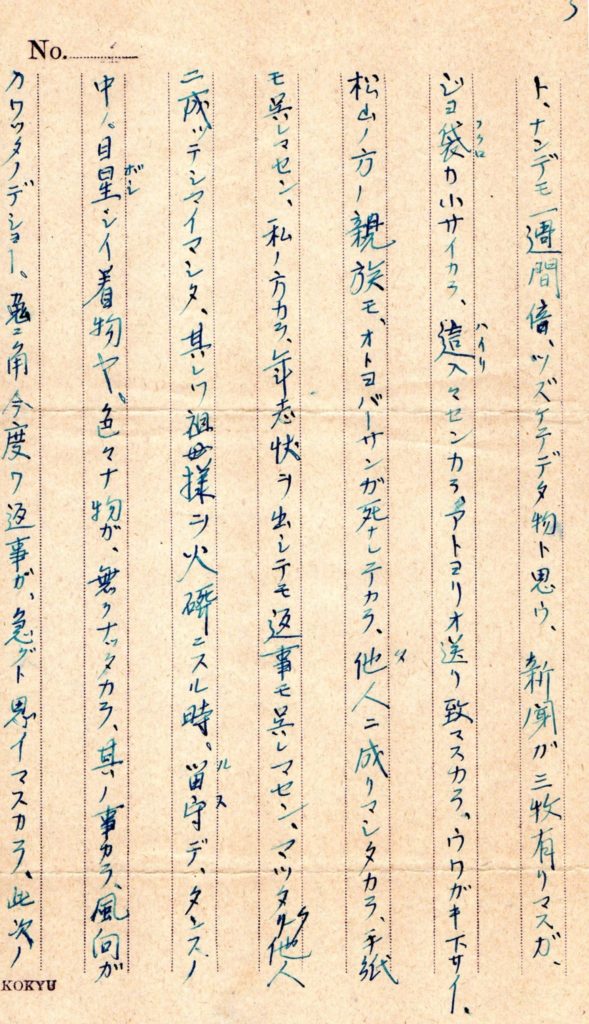 No.
ト、ナンデモ一週間倍、ツズケテデタ物ト思ウ、新聞ガ三牧有リマスガ、
ジヨ袋ガ小サイカラ、這入マセンカラ、アトヨリオ送リ致マスカラ、ウワガキ下サイ、
フクロ
ハイリ
松山ノ方ノ親族モ、オトヨバーサンガ死ナレテカラ、他人ニ成リマシタカラ、手紙
モ呉レマセン、私ノ方カラ、年志状ヲ出シテモ返事モ呉レマセン、マツタク他人
ニ成ッテシマイマシタ、其レワ祖母様ヲ火葬ニスル時、留守デ、タンスノ
ルス
中ノ目星シイ着物ヤ、色々ナ物ガ、無クナッタカラ、其ノ事カラ、風向ガ
ボシ
カワッタノデショー、兎ニ角今度ワ返事ガ、急グト思イマスカラ、此次ノ
KOKYU